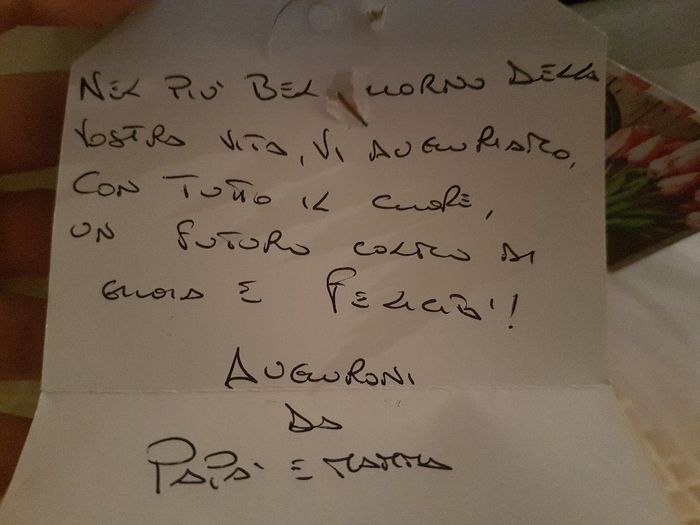 NEL PIÙ BEL GIORNO DELLA
VOSTRA VITA, VI AUGURIAMO,
CON TUTTO IL CUORE,
UN FUTURO COLMO DI
GIOIA E FELICITÀ!
AUGURONI
DA
PAPÀ E MAMMA